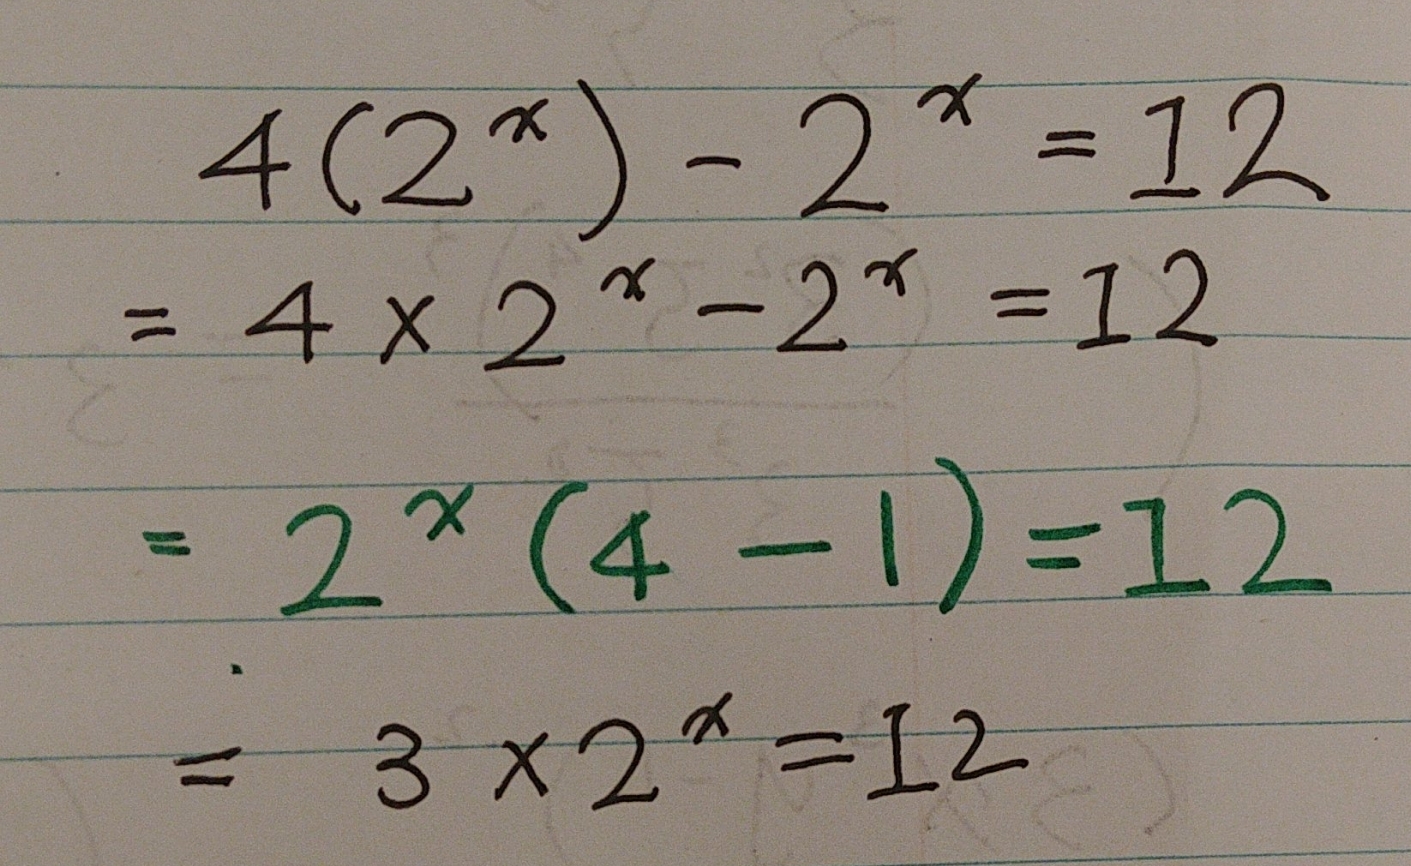 4(2ˣ) - 2ˣ = 12
= 4 × 2ˣ - 2ˣ = 12
= 2ˣ (4 - 1) = 12
= 3 × 2ˣ = 12